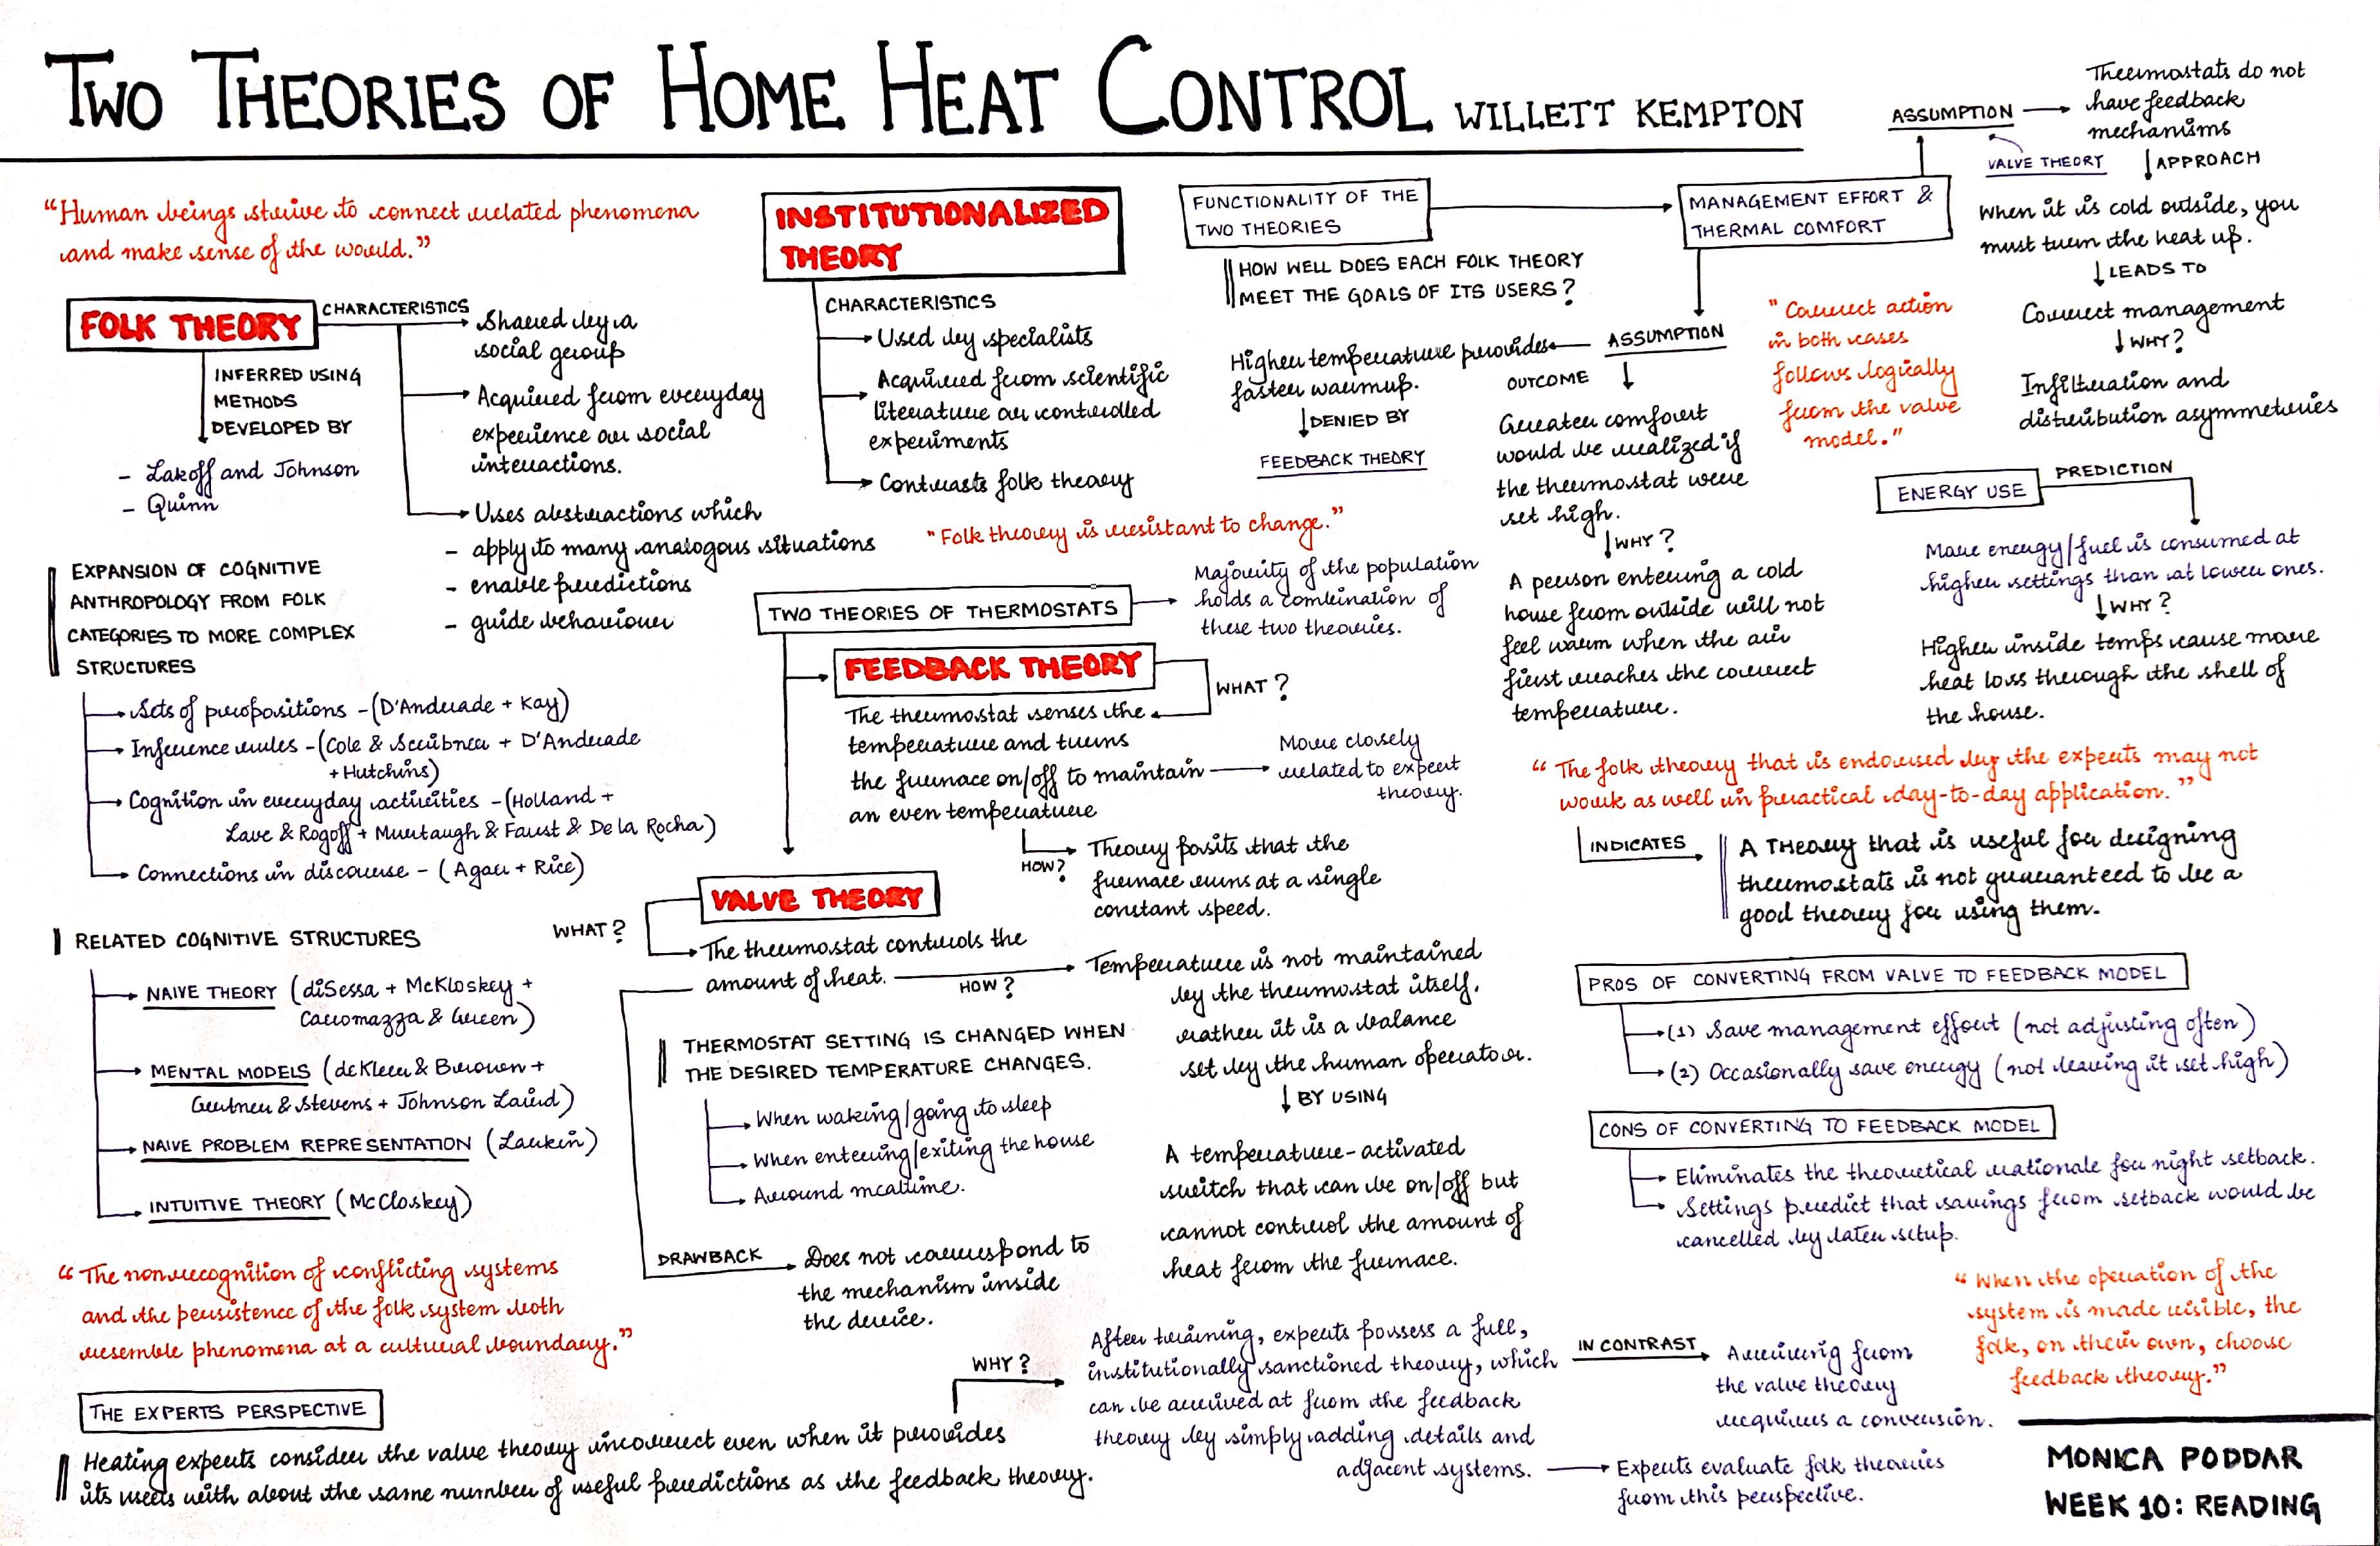 TWO THEORIES OF HOME HEAT CONTROL WILLETT KEMPTON
"Human beings strive to connect related phenomena
and make sense of the world."
FOLK THEORY
CHARACTERISTICS
Shared by a
social group
Acquired from everyday
experience or social
interactions.
Uses abstractions which
- apply to many analogous situations
- enable predictions
- guide behaviour
INFERRED USING
METHODS
DEVELOPED BY
- Lakoff and Johnson
- Quinn
EXPANSION OF COGNITIVE
ANTHROPOLOGY FROM FOLK
CATEGORIES TO MORE COMPLEX
STRUCTURES
Sets of propositions - (D'Andrade + Kay)
Inference rules - (Cole & Scribner + D'Andrade
+ Hutchins)
Cognition in everyday activities - (Holland +
Lave & Rogoff + Murtaugh & Faust & De la Rocha)
Connections in discourse - (Agar + Rice)
RELATED COGNITIVE STRUCTURES
NAIVE THEORY (diSessa + McKloskey +
Carromazza & Green)
MENTAL MODELS (deKleer & Brown +
Gentner & Stevens + Johnson Laird)
NAIVE PROBLEM REPRESENTATION (Larkin)
INTUITIVE THEORY (McCloskey)
"The nonrecognition of conflicting systems
and the persistence of the folk system both
resemble phenomena at a cultural boundary."
THE EXPERTS PERSPECTIVE
Heating experts consider the valve theory incorrect even when it provides
its users with about the same number of useful predictions as the feedback theory.
WHY?
After training, experts possess a full,
institutionally sanctioned theory, which
can be arrived at from the feedback
theory by simply adding details and
adjacent systems.
IN CONTRAST
Arriving from
the valve theory
requires a conversion.
Experts evaluate folk theories
from this perspective.
INSTITUTIONALIZED
THEORY
CHARACTERISTICS
Used by specialists
Acquired from scientific
literature or controlled
experiments
Contrasts folk theory
"Folk theory is resistant to change."
TWO THEORIES OF THERMOSTATS
Majority of the population
holds a combination of
these two theories.
FEEDBACK THEORY
WHAT?
The thermostat senses the
temperature and turns
the furnace on/off to maintain
an even temperature
More closely
related to expert
theory.
HOW?
Theory posits that the
furnace runs at a single
constant speed.
VALVE THEORY
WHAT?
The thermostat controls the
amount of heat.
HOW?
Temperature is not maintained
by the thermostat itself,
rather it is a balance
set by the human operator.
BY USING
A temperature-activated
switch that can be on/off but
cannot control the amount of
heat from the furnace.
THERMOSTAT SETTING IS CHANGED WHEN
THE DESIRED TEMPERATURE CHANGES.
When waking/going to sleep
When entering/exiting the house
Around mealtime.
DRAWBACK
Does not correspond to
the mechanism inside
the device.
FUNCTIONALITY OF THE
TWO THEORIES
HOW WELL DOES EACH FOLK THEORY
MEET THE GOALS OF ITS USERS?
MANAGEMENT EFFORT &
THERMAL COMFORT
ASSUMPTION
Higher temperature provides
faster warmup.
DENIED BY
FEEDBACK THEORY
OUTCOME
Greater comfort
would be realized if
the thermostat were
set high.
WHY?
A person entering a cold
house from outside will not
feel warm when the air
first reaches the correct
temperature.
ASSUMPTION
Thermostats do not
have feedback
mechanisms
VALVE THEORY
APPROACH
When it is cold outside, you
must turn the heat up.
LEADS TO
Correct management
WHY?
Infiltration and
distribution asymmetries
"Correct action
in both cases
follows logically
from the valve
model."
ENERGY USE
PREDICTION
More energy/fuel is consumed at
higher settings than at lower ones.
WHY?
Higher inside temps cause more
heat loss through the shell of
the house.
"The folk theory that is endorsed by the experts may not
work as well in practical day-to-day application."
INDICATES
A THEORY that is useful for designing
thermostats is not guaranteed to be a
good theory for using them.
PROS OF CONVERTING FROM VALVE TO FEEDBACK MODEL
(1) Save management effort (not adjusting often)
(2) Occasionally save energy (not leaving it set high)
CONS OF CONVERTING TO FEEDBACK MODEL
Eliminates the theoretical rationale for night setback.
Settings predict that savings from setback would be
cancelled by later setup.
"When the operation of the
system is made visible, the
folk, on their own, choose
feedback theory."
MONICA PODDAR
WEEK 10: READING